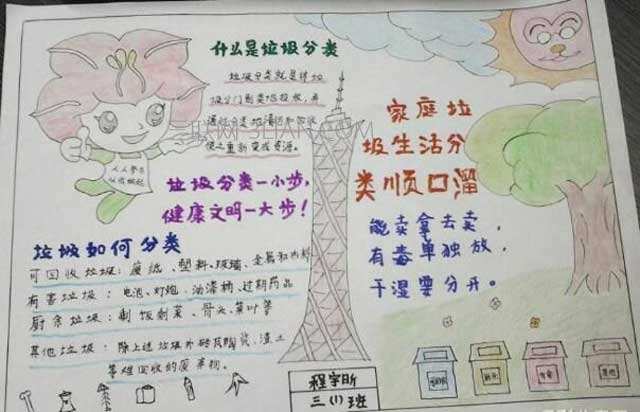 什么是垃圾分类
垃圾分类就是将垃
圾分门别类地投放,并
通过分类地清运和回收
使之重新变成资源。
垃圾分类一小步,
健康文明一大步!
家庭垃
圾生活分
类顺口溜
能卖拿去卖,
有毒单独放,
干湿要分开。
垃圾如何分类
可回收垃圾:废纸、塑料、玻璃、金属和布料
有害垃圾:电池、灯炮、油漆桶、过期药品
厨余垃圾:剩饭剩菜、骨头、菜叶等
其他垃圾:除上述垃圾外砖瓦陶瓷、渣土
等难回收的废弃物。
人人参与
三(1)班